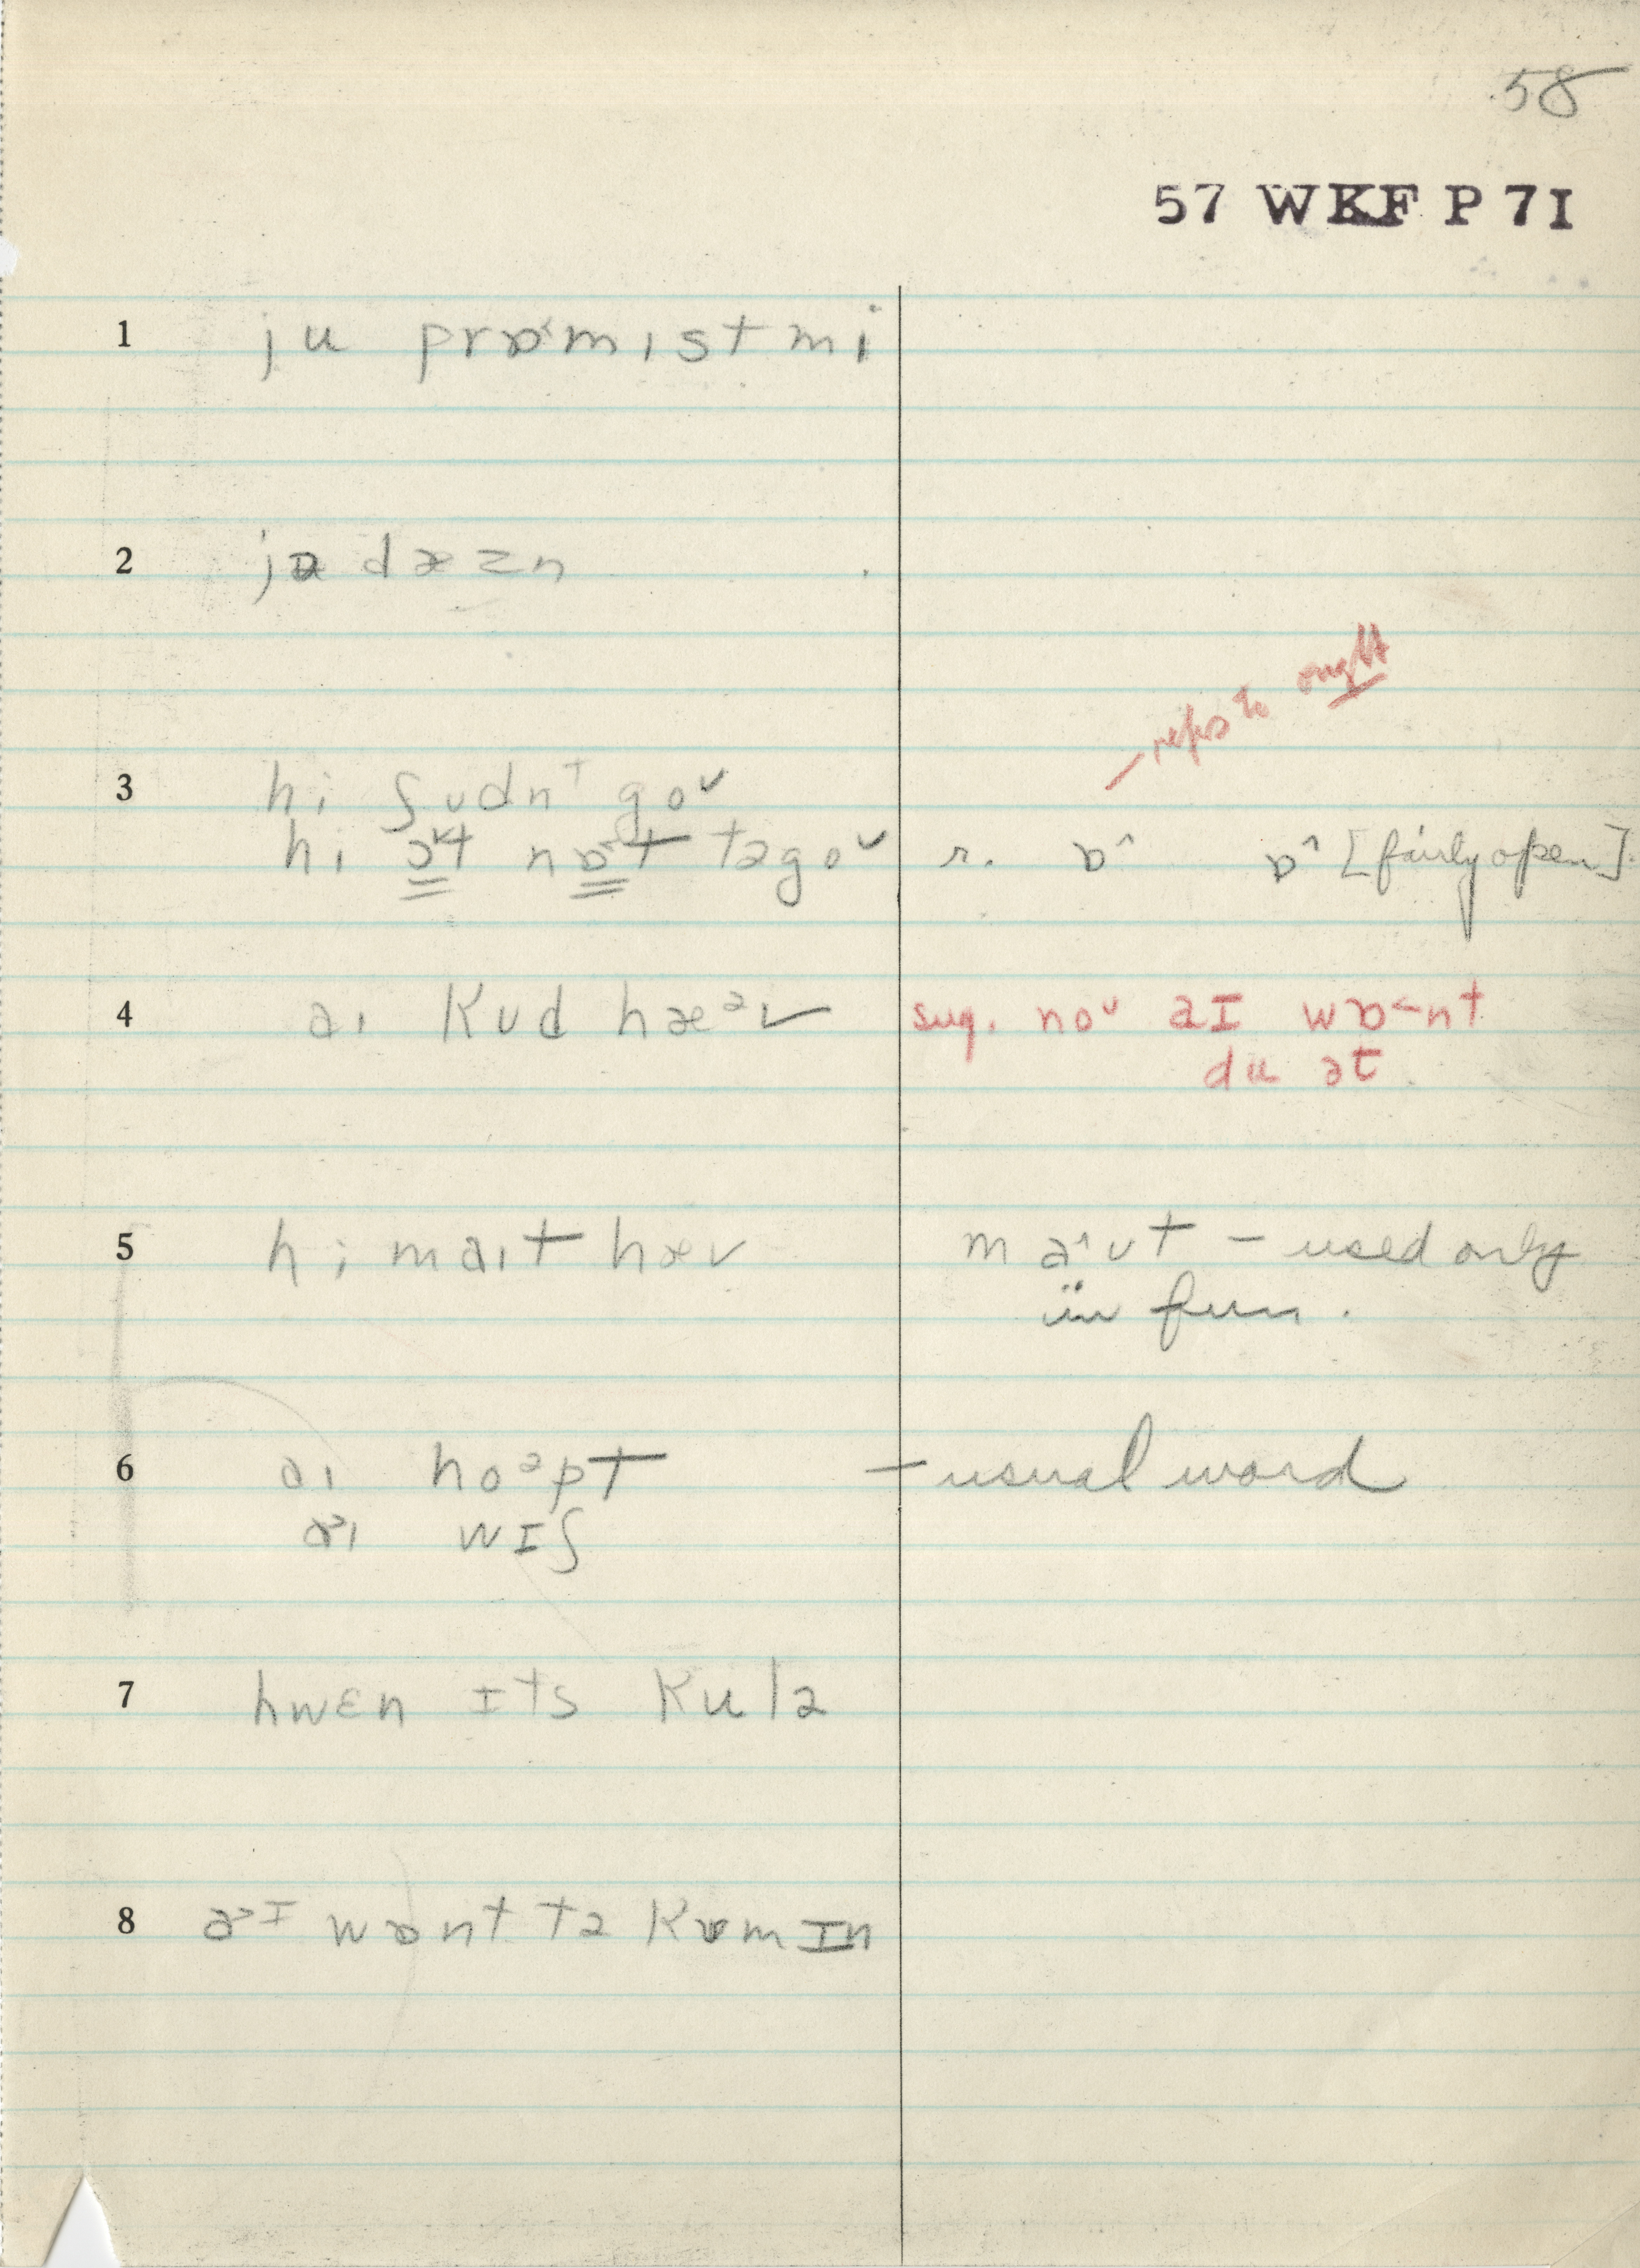 58
57 WKF P 7I
1 ju prɒ˂mɪst mi
2
— refers to ought
3 hi ʃʊdnᵗ goᵛ
hi ɔ˅t nɒ˂t təgoᵛ r. ɒ^ ɒ^ [fairly open].
4 aɪ kʊd hæᵊv sug. noᵛ aɪ wɒ˂nt
du ət
5 hi maɪt hæv ma^ʊt – used only
in fun.
6 aɪ hoᵊpt – usual word
a˃ɪ wɪʃ
7 hwɛn ɪts kulə
8 a˃ɪ wɒnt tə kʊm ɪn